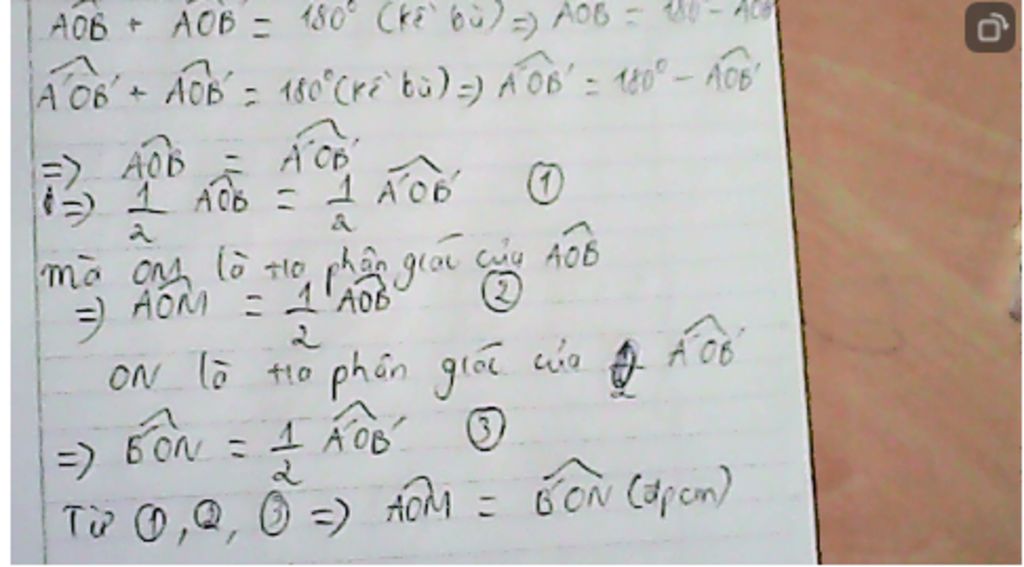 AOB + AOB' = 180° (kề bù) => AOB = 180° - AOB'
A'OB' + AOB' = 180° (kề bù) => A'OB' = 180° - AOB'
=> AOB = A'OB'
=> 1/2 AOB = 1/2 A'OB' ①
mà OM là tia phân giác của AOB
=> AOM = 1/2 AOB ②
ON là tia phân giác của A'OB'
=> B'ON = 1/2 A'OB' ③
Từ ①, ②, ③ => AOM = B'ON (đpcm)